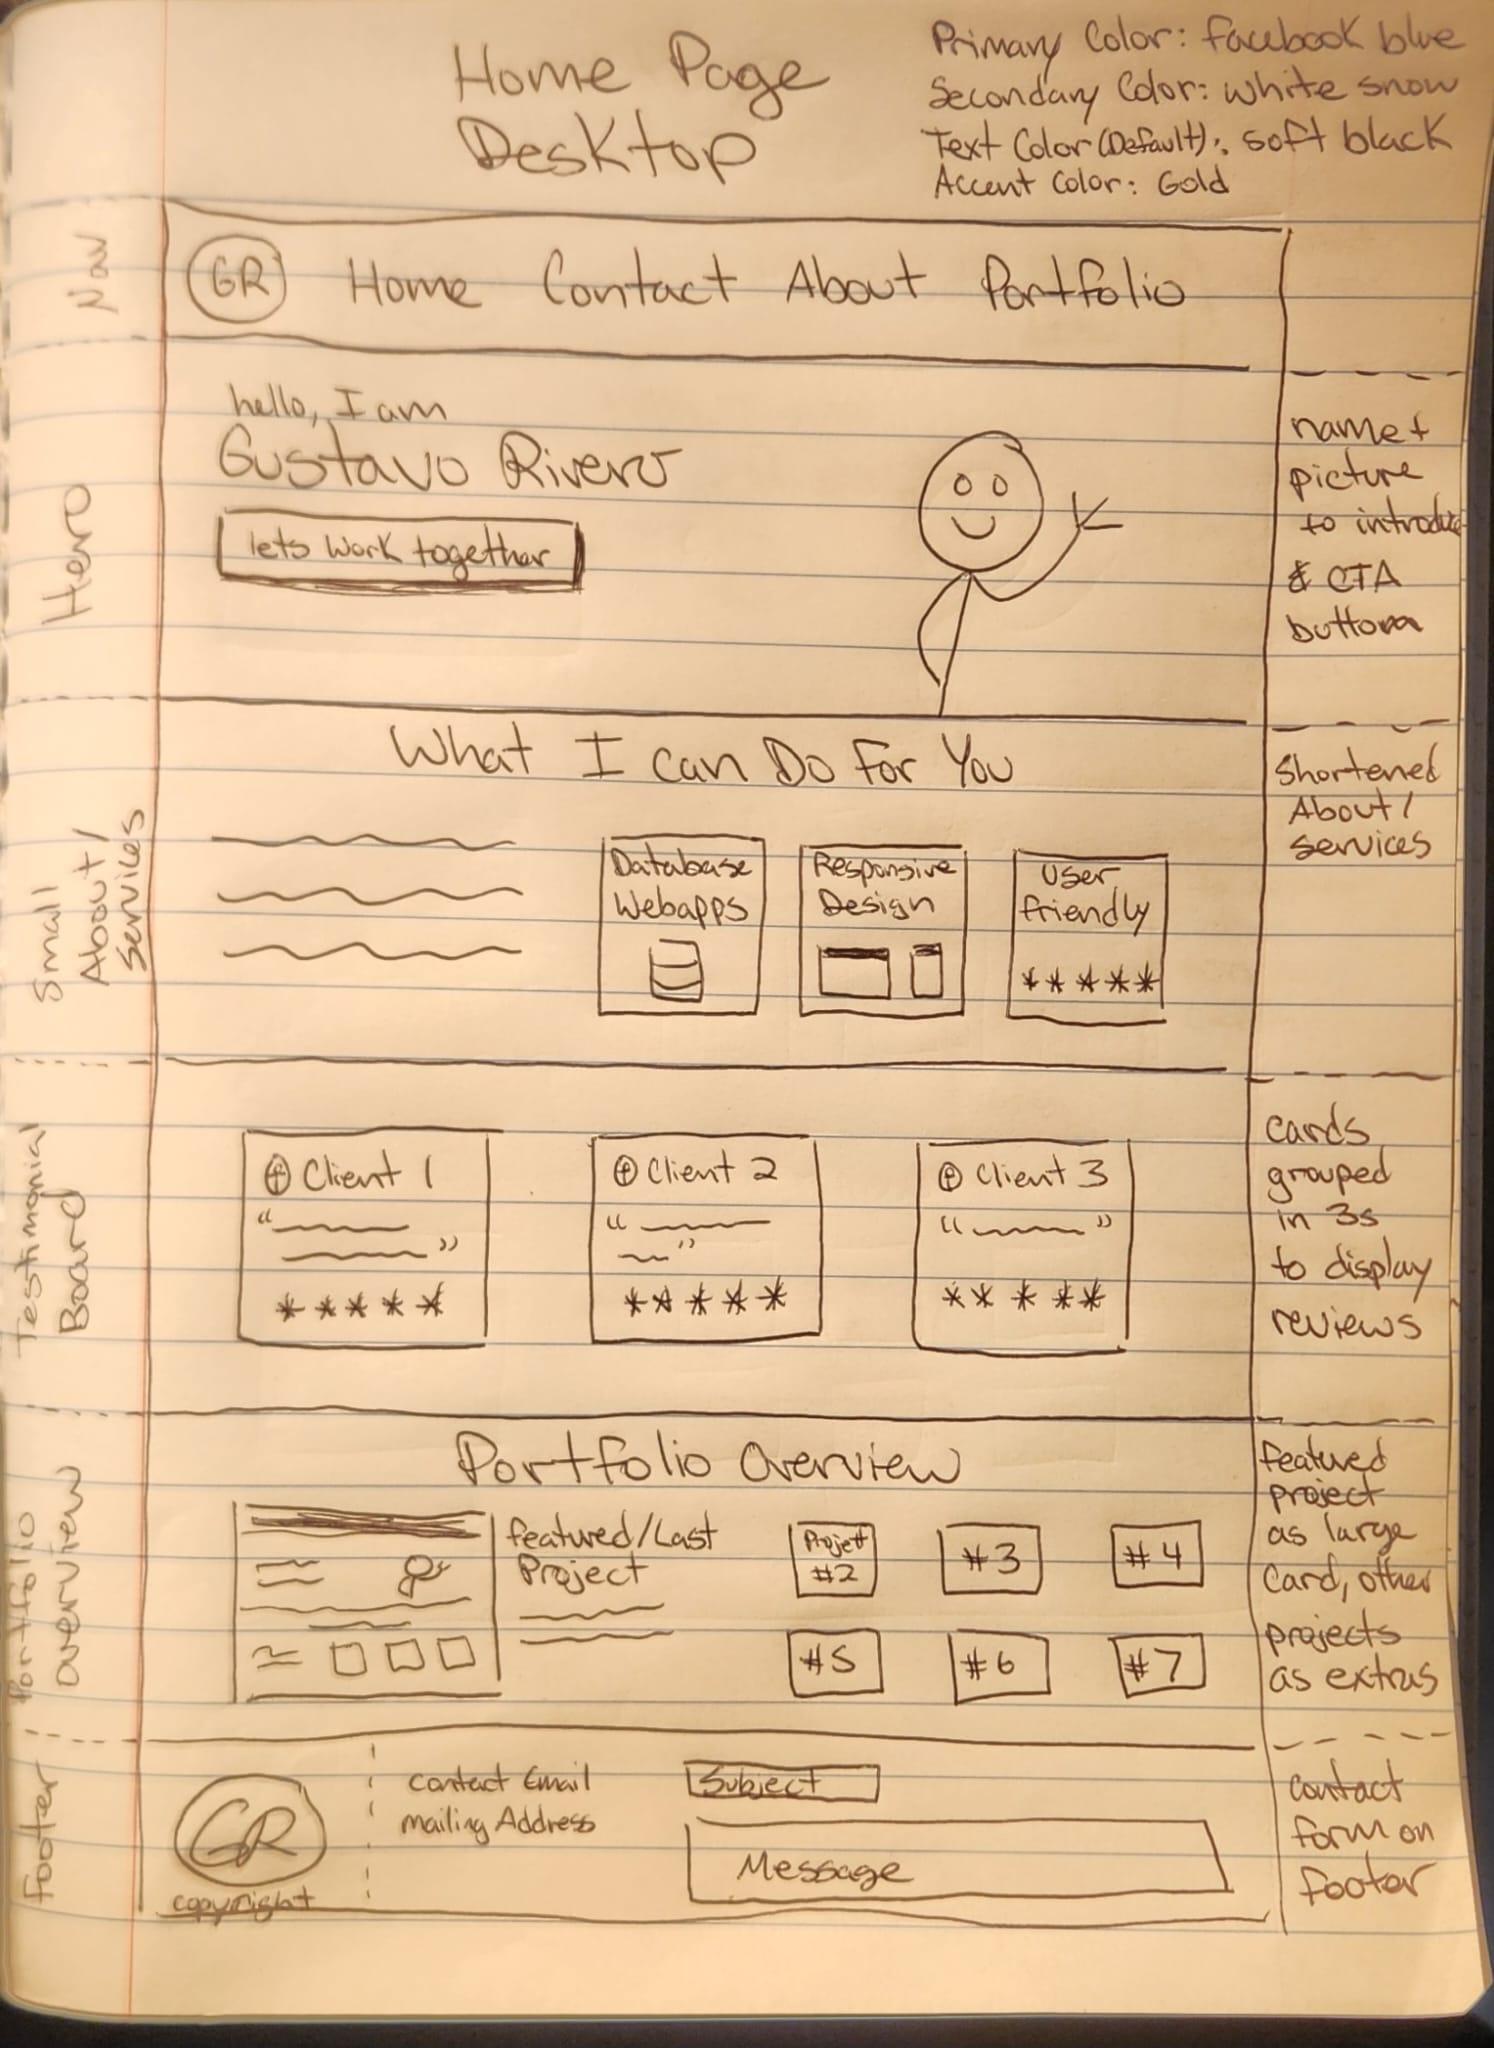 Home Page
Desktop
Primary Color: facebook blue
Secondary Color: white snow
Text Color (Default): soft black
Accent Color: Gold
Nav
GR Home Contact About Portfolio
Hero
hello, I am
Gustavo Rivero
lets work together
name +
picture
to introduce
& CTA
button
Small
About/
Services
What I can Do For You
Database
Webapps
Responsive
Design
User
friendly
*****
Shortened
About/
services
Testimonial
Board
Client 1
“ ”
*****
Client 2
“ ”
*****
Client 3
“ ”
*****
cards
grouped
in 3s
to display
reviews
Portfolio
overview
Portfolio Overview
featured/Last
Project
Project
#2
#3
#4
#5
#6
#7
featured
project
as large
Card, other
projects
as extras
Footer
GR
copyright
contact Email
mailing Address
Subject
Message
contact
form on
footer